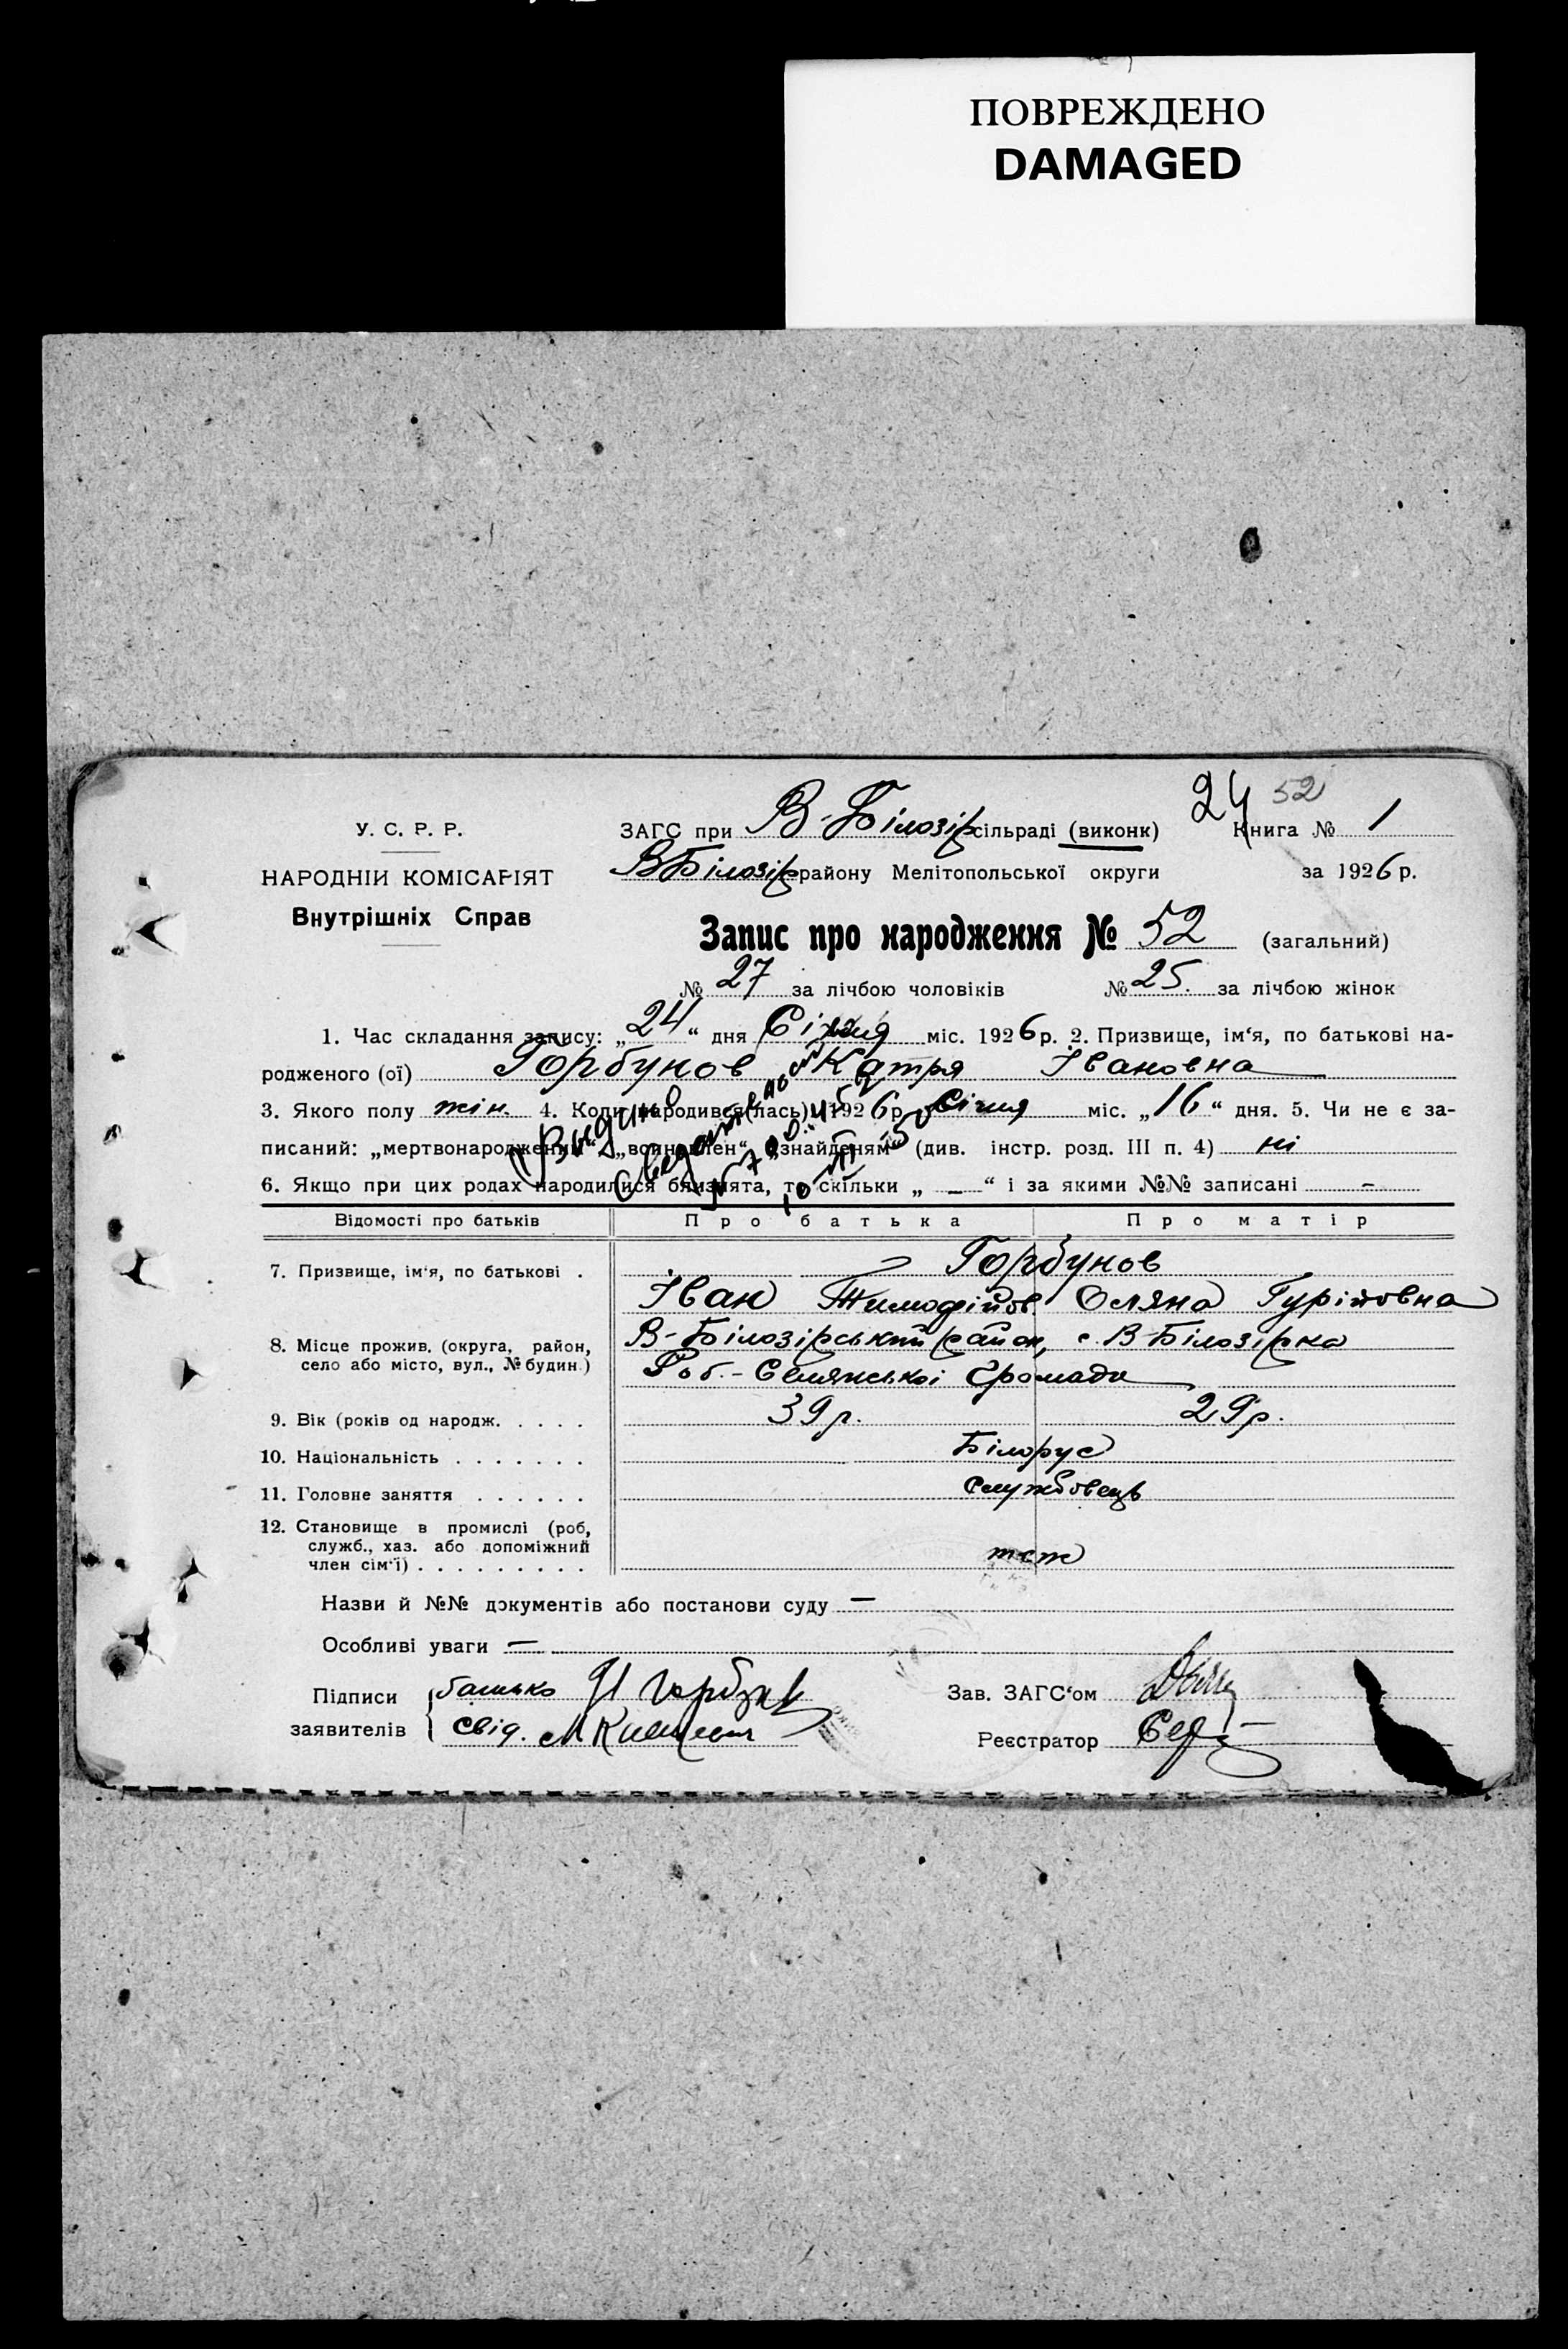 ПОВРЕЖДЕНО
DAMAGED
24 52
У. С. Р. Р.
ЗАГС при В-Білозір сільраді (виконк) Книга № 1
НАРОДНІЙ КОМІСАРІЯТ
ВБілозір району Мелітопольської округи за 1926 р.
Внутрішніх Справ
Запис про народження № 52 (загальний)
№ 27 за лічбою чоловіків № 25. за лічбою жінок
1. Час складання запису: „24“ дня Січня міс. 1926 р. 2. Призвище, ім‘я, по батькові на-
родженого (ої) Горбунов Катря Івановна
3. Якого полу жін. 4. Коли народився(лась) 1926 р. Січня міс. „16“ дня. 5. Чи не є за-
писаний: „мертвонароджений“ „всиновлен“ „знайденям“ (див. інстр. розд. III п. 4) ні
6. Якщо при цих родах народилися близнята, то скільки „ – “ і за якими №№ записані –
Відомості про батьків Про батька Про матір
7. Призвище, ім‘я, по батькові . Горбунов
Іван Тимофійов. Оляна Гурійовна
8. Місце прожив. (округа, район, В-Білозірський район, с. В-Білозірка
село або місто, вул., № будин.) Роб.-Селянської Громади
9. Вік (років од народж. . . . . 39 р. 29 р.
10. Національність . . . . . . . Білорус
11. Головне заняття . . . . . . службовець
12. Становище в промислі (роб,
служб., хаз. або допоміжний
член сім‘ї) . . . . . . . . . теж
Назви й №№ документів або постанови суду —
Особливі уваги —
Підписи батько И Горбун
Зав. ЗАГС‘ом
заявителів свід.
Реєстратор